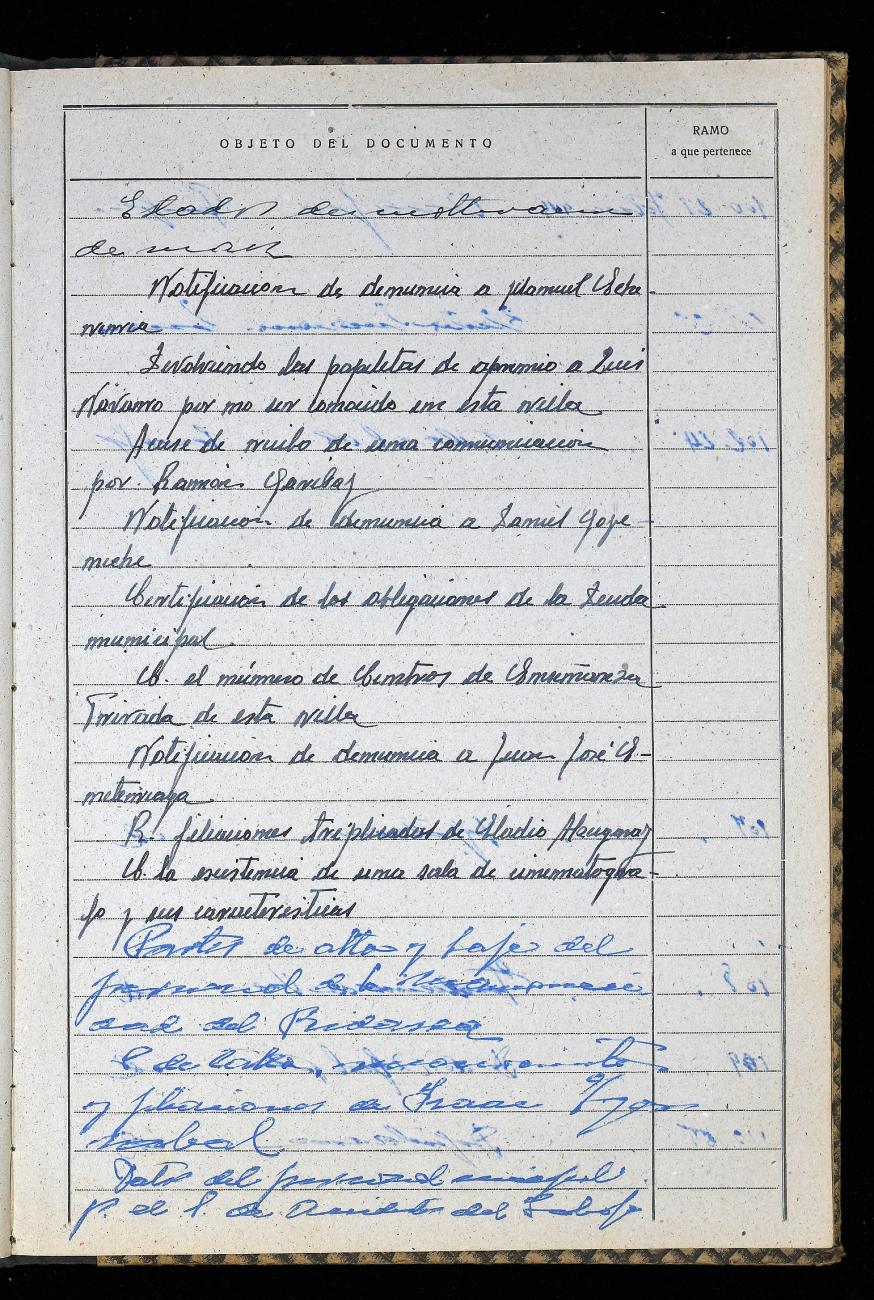 OBJETO DEL DOCUMENTO
RAMO
a que pertenece
Estados de molturacion
de maiz
Notificacion de denuncia a Manuel Eche-
nencia
Devolviendo las papeletas de apremio a Luis
Navarro por no ser conocido en esta villa
Acuse de recibo de una comunicacion
por Ramón Garibay
Notificacion de denuncia a Daniel Goye-
neche
Certificacion de las obligaciones de la Deuda
municipal
C. el número de Centros de Enseñanza
Privada de esta villa
Notificacion de denuncia a Juan José E-
R. filiaciones triplicadas de Eladio
C. la existencia de una sala de cinematogra-
fo y sus caracteristicas
Partes de alta y baja del
personal de la Mancomuni
dad del Bidasoa
C de
y filiaciones de Isaac
Datos del personal
p. el S de del Trabajo